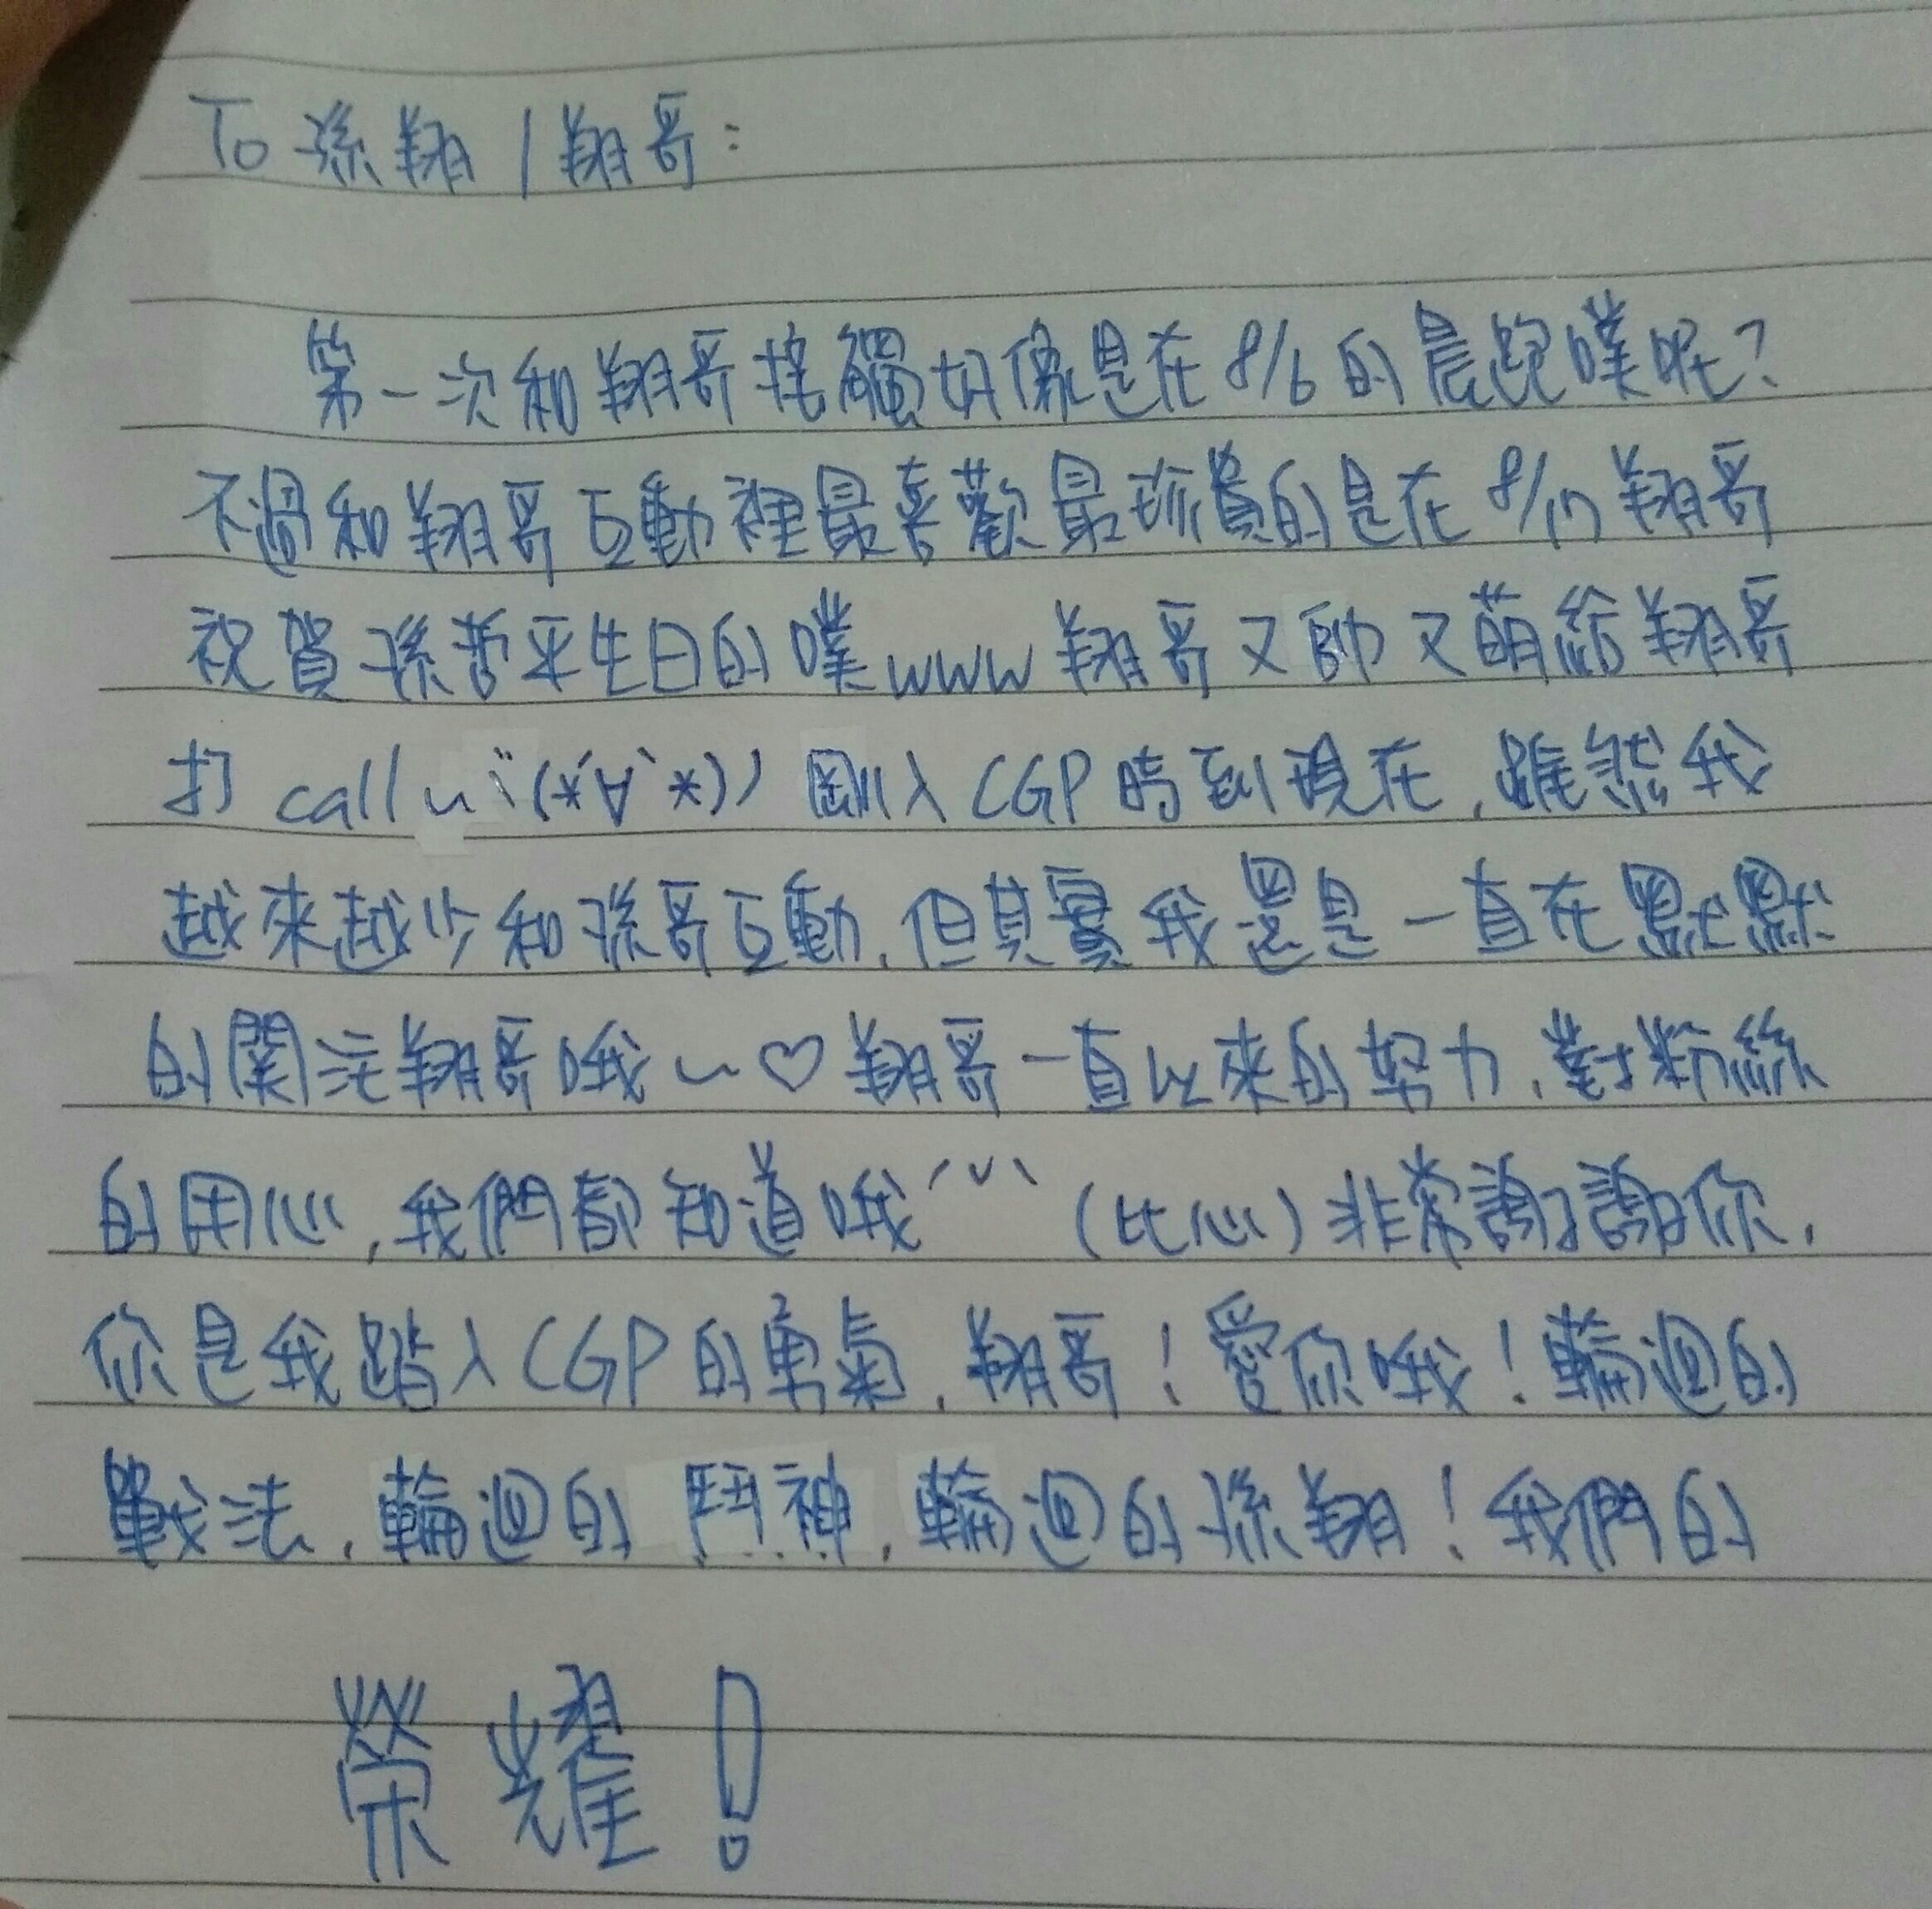 To 孫翔/翔哥:
第一次和翔哥接觸好像是在8/6的晨跑噗呢?
不過和翔哥互動裡最喜歡最珍貴的是在8/17翔哥
祝賀孫哲平生日的噗www翔哥又帥又萌給翔哥
打call~(*´∀`*)) 剛入CGP時到現在,雖然我
越來越少和孫哥互動,但其實我還是一直在默默
的關注翔哥哦~♡翔哥一直以來的努力,對粉絲
的用心,我們都知道哦 (比心)非常謝謝你,
你是我踏入CGP的勇氣,翔哥!愛你哦!輪迴的
戰法,輪迴的鬥神,輪迴的孫翔!我們的
榮耀!